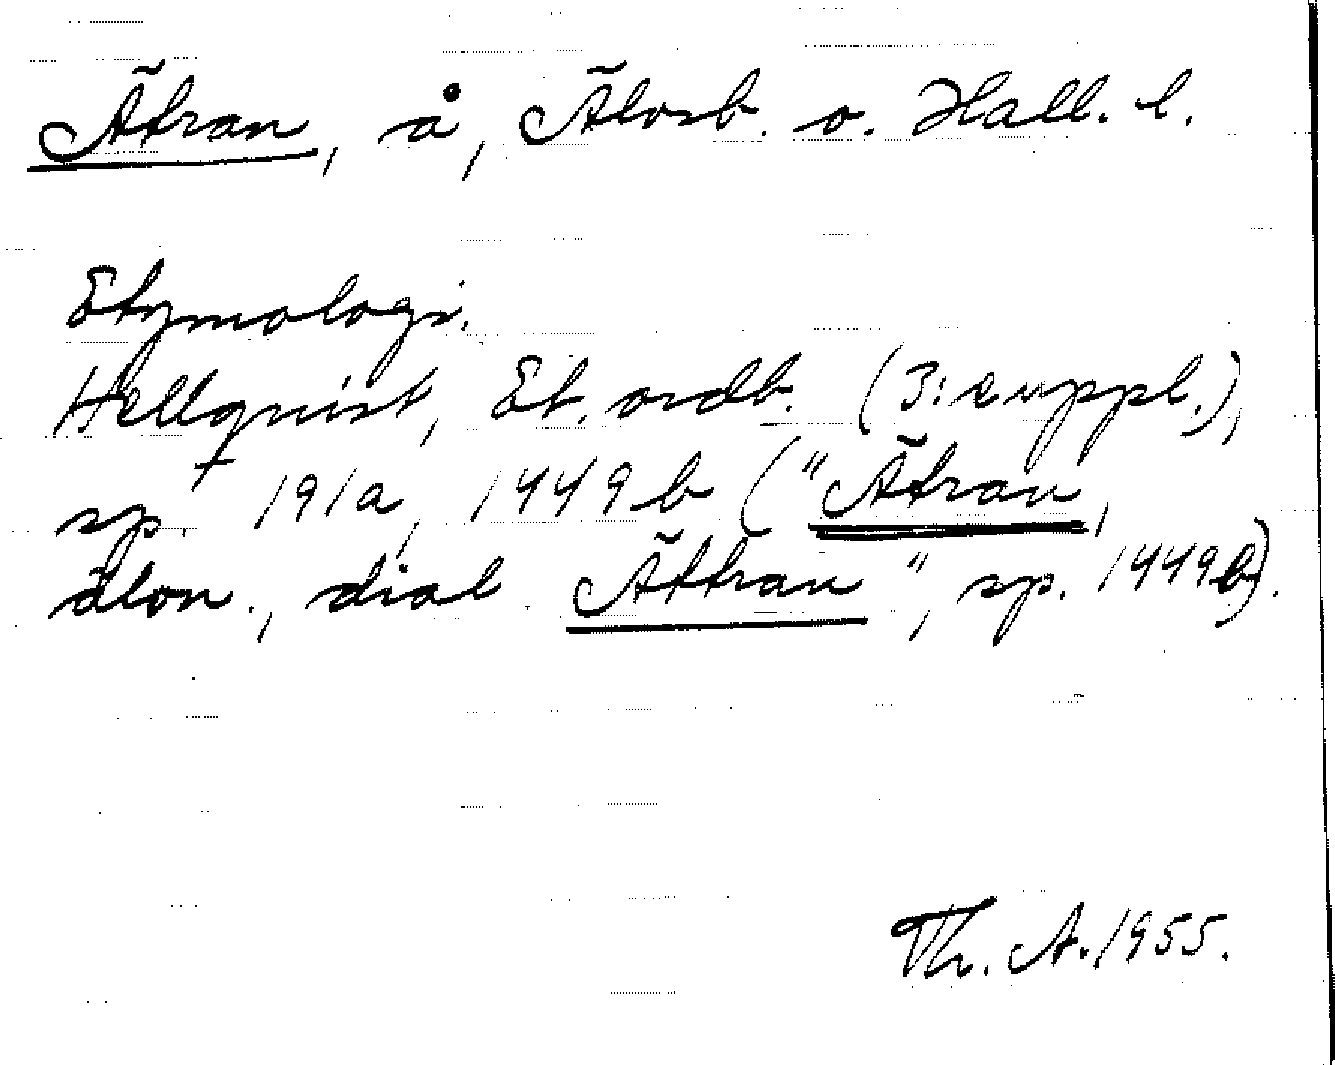 Ätran, å, Älvsb. o. Hall. l.
Etymologi.
Hellquist, Et. ordb. (3: e uppl.),
sp. 191a, 1449b ("Ätran,
älvn., dial Ättran", sp. 1449b).
Th. A. 1955.